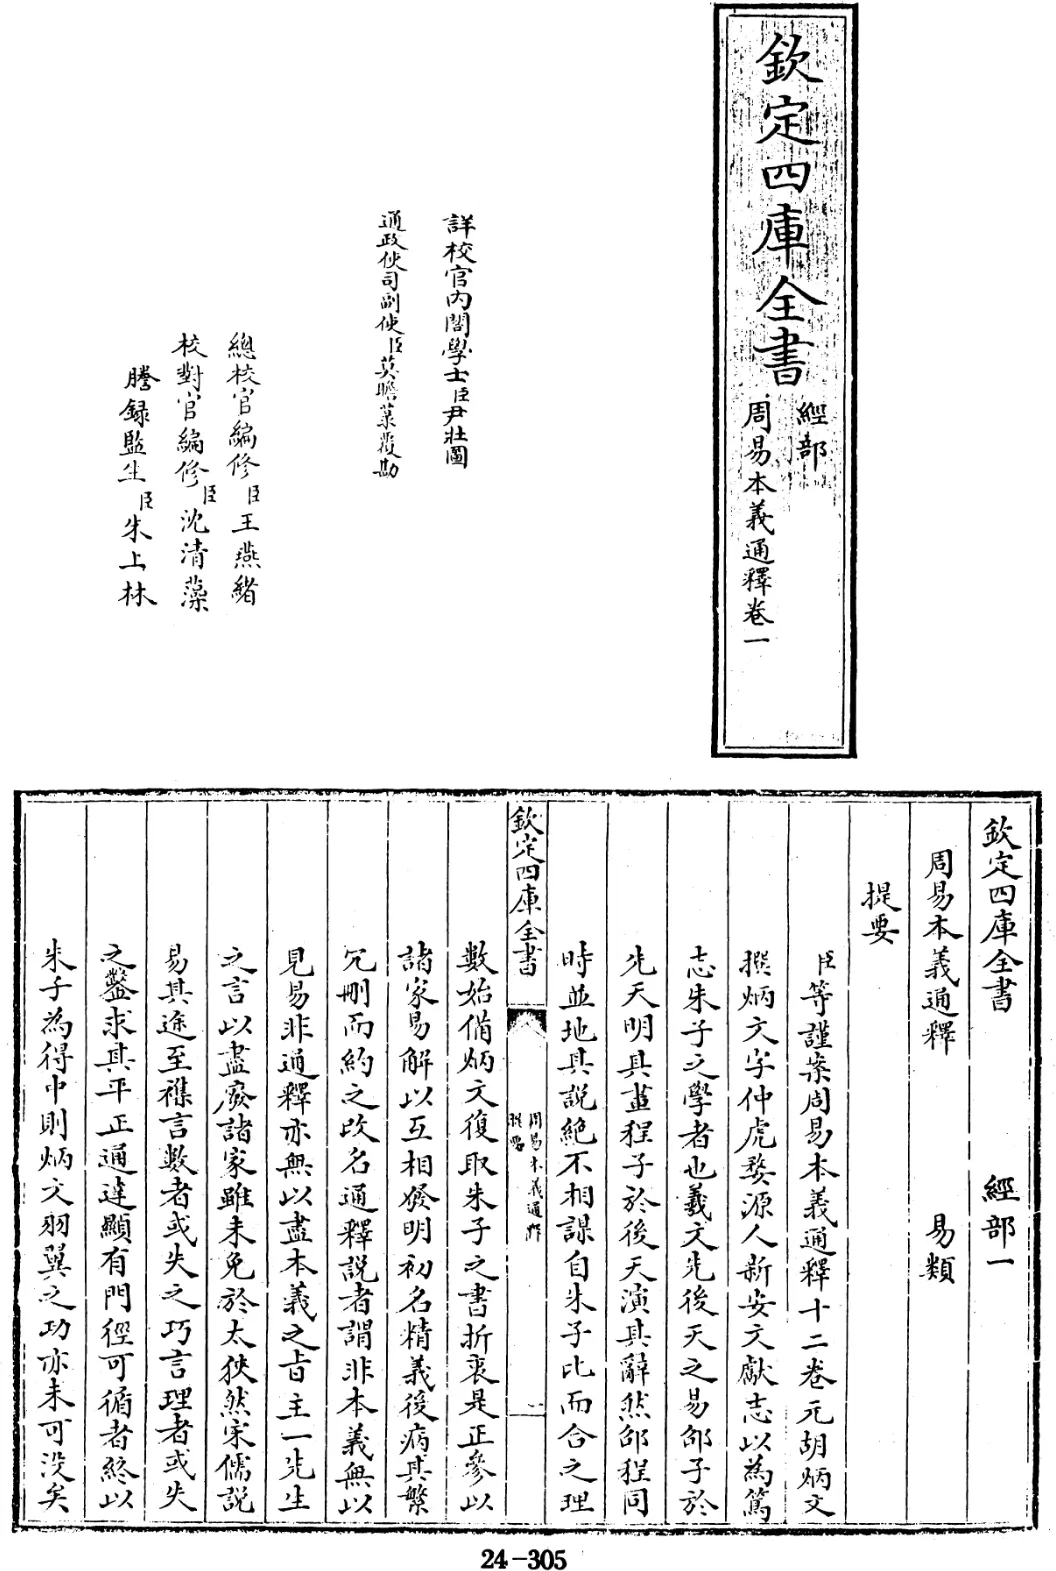 欽定四庫全書
經部
周易本義通釋卷一
詳校官內閣學士臣尹壯圖
通政使司副使臣莫瞻菉覆勘
總校官編修臣王燕緒
校對官編修臣沈清藻
謄録監生臣朱上林
欽定四庫全書 經部一
周易本義通釋 易類
提要
臣等謹案周易本義通釋十二卷元胡炳文
撰炳文字仲虎婺源人新安文獻志以為篤
志朱子之學者也羲文先後天之易邵子於
先天明其畫程子於後天演其辭然邵程同
時並地其説絶不相謀自朱子比而合之理
欽定四庫全書
周易本義通釋
提要
一
數始備炳文復取朱子之書折衷是正參以
諸家易解以互相發明初名精義後病其繁
冗刪而約之改名通釋説者謂非本義無以
見易非通釋亦無以盡本義之旨主一先生
之言以盡廢諸家雖未免於太狹然宋儒説
易其途至襍言數者或失之巧言理者或失
之鑿求其平正通達顯有門徑可循者終以
朱子為得中則炳文羽翼之功亦未可沒矣
24-305